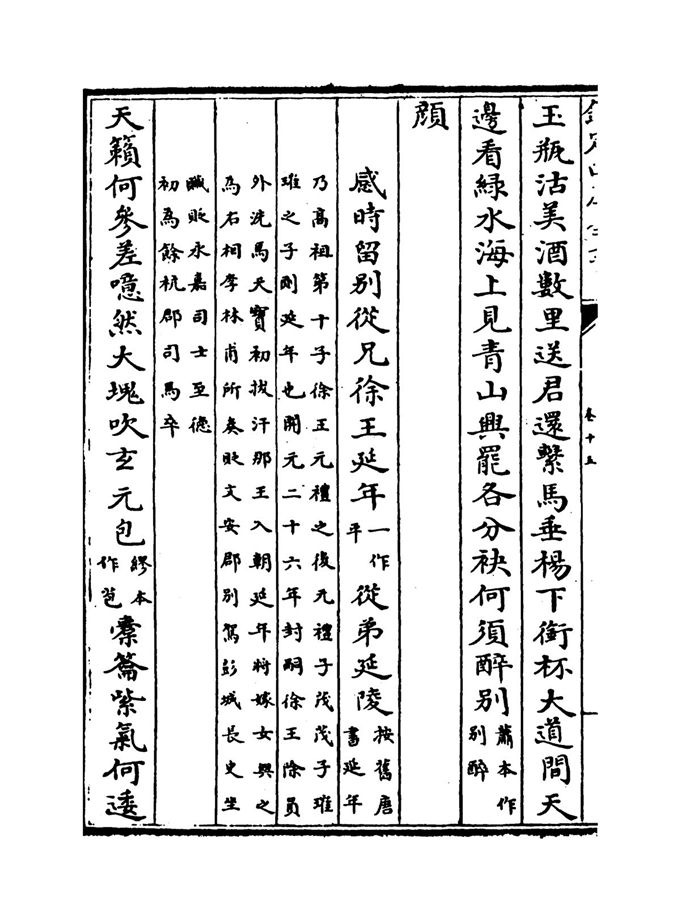 玉瓶沽美酒數里送君還繫馬垂楊下銜杯大道間天
邊看綠水海上見青山興罷各分袂何須醉別蕭本作別醉
顔
感時留別從兄徐王延年一作平從弟延陵按舊唐書延年
乃高祖第十子徐王元禮之後元禮子茂茂子璀
璀之子則延年也開元二十六年封嗣徐王除員
外洗馬天寶初拔汗那王入朝延年將嫁女與之
為右相李林甫所奏貶文安郡別駕彭城長史坐
贓貶永嘉司士至德
初為餘杭郡司馬卒
天籟何參差噫然大塊吹玄元包繆本作苞橐籥紫氣何逶
卷十五